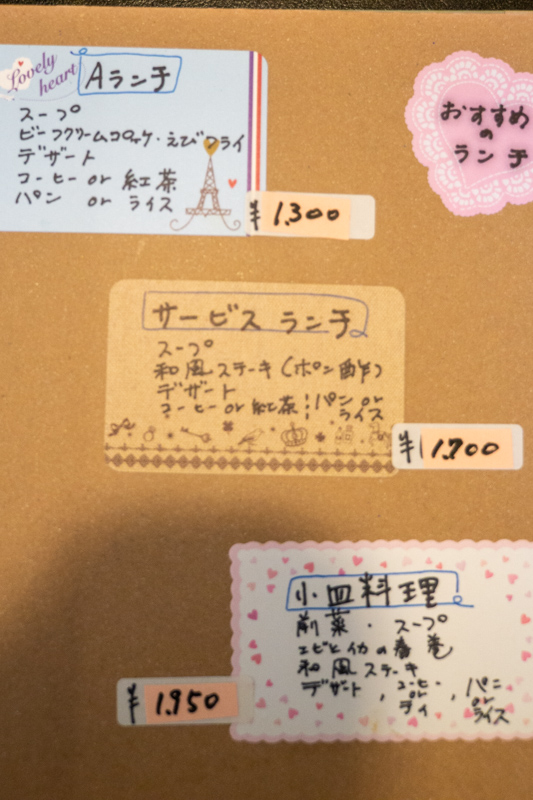 Lovely heart
Aランチ
スープ
ビーフクリームコロッケ・えびフライ
デザート
コーヒー or 紅茶
パン or ライス
¥1,300
おすすめ
の
ランチ
サービスランチ
スープ
和風ステーキ(ポン酢)
デザート
コーヒー or 紅茶 パン or ライス
¥1,700
小皿料理
前菜・スープ
エビとイカの春巻
和風ステーキ
デザート, コーヒー or ティ, パン or ライス
¥1,950